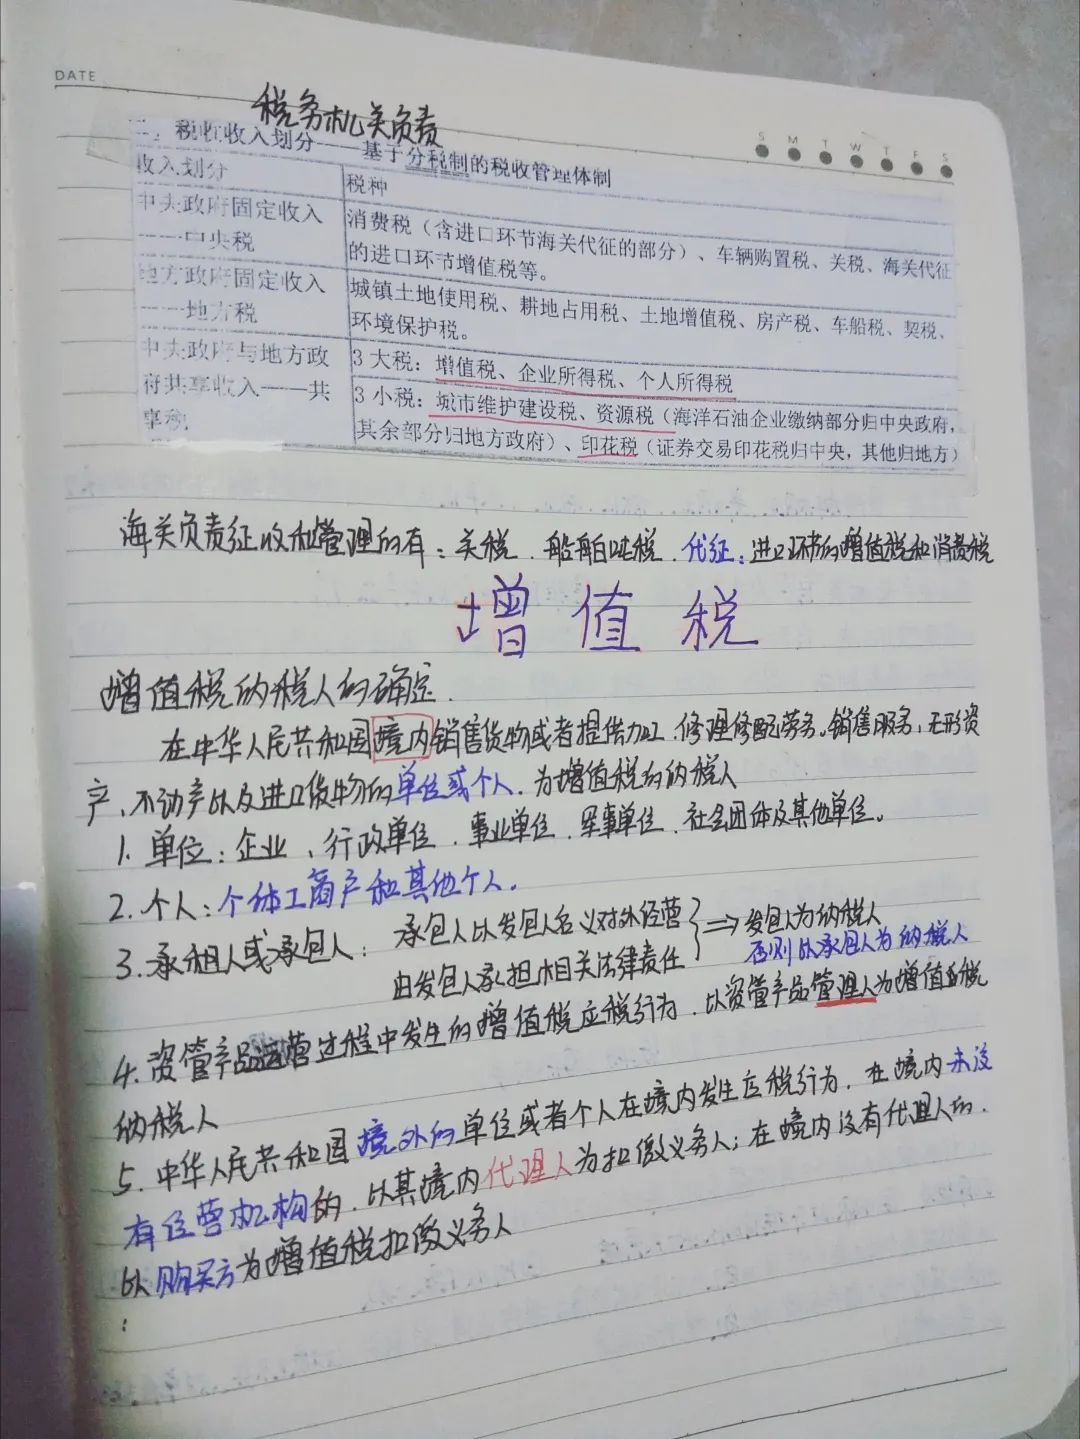 DATE
S M T W T F S
税务机关负责
二、税收收入划分——基于分税制的税收管理体制
收入划分 税种
中央政府固定收入
——中央税
消费税（含进口环节海关代征的部分）、车辆购置税、关税、海关代征
的进口环节增值税等。
地方政府固定收入
——地方税
城镇土地使用税、耕地占用税、土地增值税、房产税、车船税、契税、
环境保护税。
中央政府与地方政
府共享收入——共
享税
3 大税：增值税、企业所得税、个人所得税
3 小税：城市维护建设税、资源税（海洋石油企业缴纳部分归中央政府，
其余部分归地方政府）、印花税（证券交易印花税归中央，其他归地方）
海关负责征收和管理的有：关税、船舶吨税、代征：进口环节的增值税和消费税
增值税
增值税纳税人的确定.
在中华人民共和国境内销售货物或者提供加工、修理修配劳务。销售服务，无形资
产、不动产以及进口货物的单位或个人，为增值税的纳税人
1. 单位：企业、行政单位、事业单位、军事单位、社会团体及其他单位。
2. 个人：个体工商户和其他个人.
3. 承租人或承包人： 承包人以发包人名义对外经营
由发包人承担相关法律责任
⇒ 发包人为纳税人
否则以承包人为纳税人
4. 资管产品运营过程中发生的增值税应税行为，以资管产品管理人为增值税
纳税人
5. 中华人民共和国境外的单位或者个人在境内发生应税行为，在境内未设
有经营机构的，以其境内代理人为扣缴义务人；在境内没有代理人的.
以购买方为增值税扣缴义务人